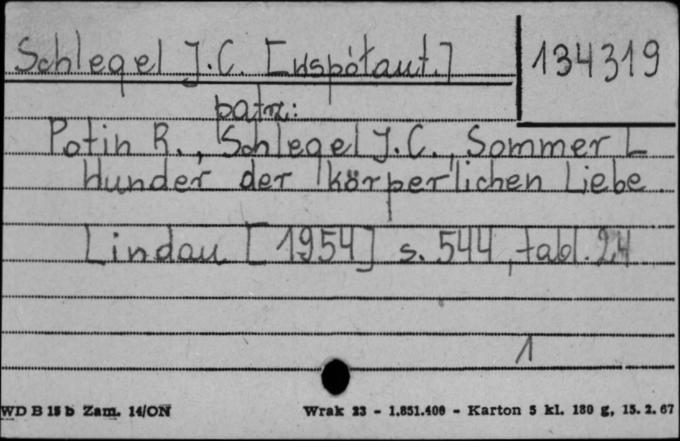 Schlegel J.C. [współaut.] 134319
patrz:
Potin R., Schlegel J.C., Sommer L
Wunder der körperlichen Liebe.
Lindau [1954] s. 544, tabl. 24
1
WD B 15 b Zam. 14/ON Wrak 23 - 1.851.400 - Karton 5 kl. 180 g, 15. 2. 67